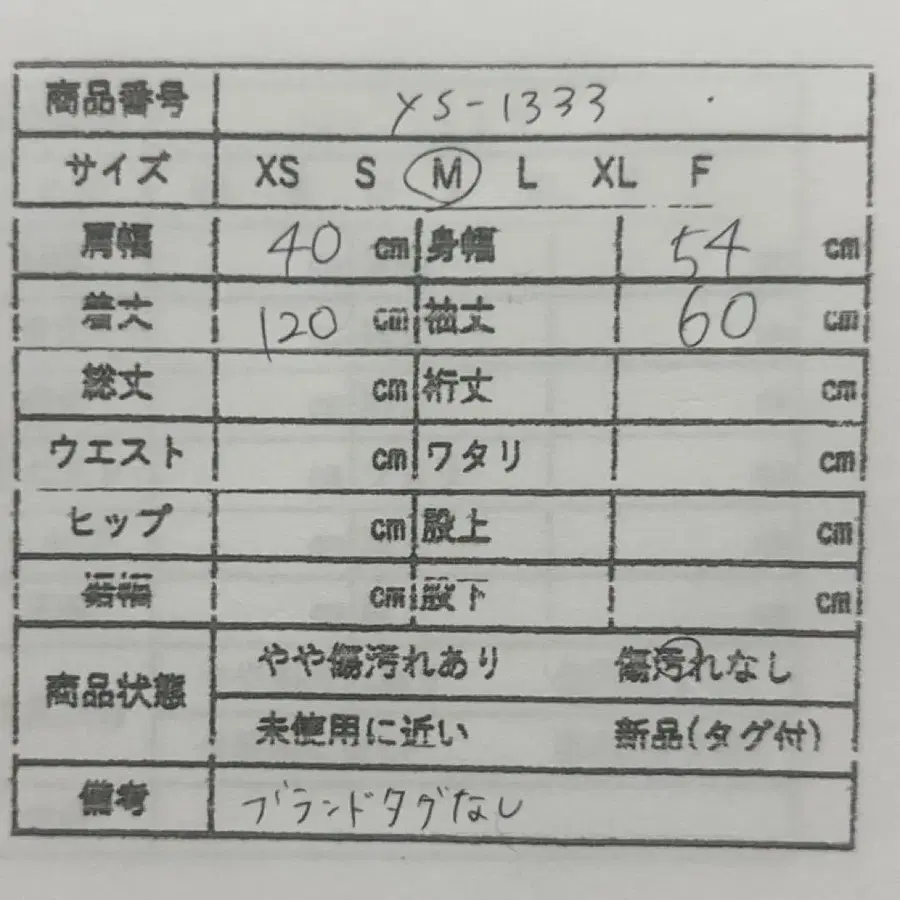 商品番号 YS-1333
サイズ XS S M L XL F
肩幅 40 cm 身幅 54 cm
着丈 120 cm 袖丈 60 cm
総丈 cm 裄丈 cm
ウエスト cm ワタリ cm
ヒップ cm 股上 cm
裾幅 cm 股下 cm
商品状態 やや傷汚れあり 傷汚れなし
未使用に近い 新品(タグ付)
備考 ブランドタグなし